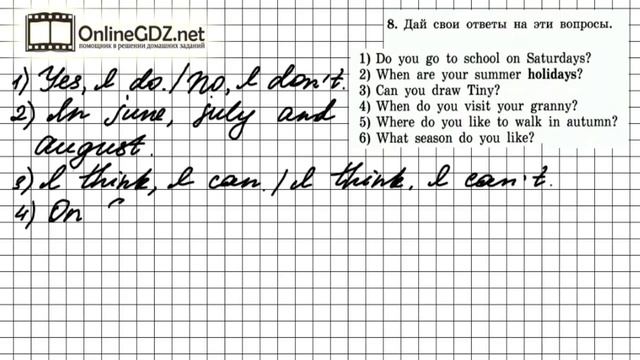 OnlineGDZ.net
помощник в решении домашних заданий
8. Дай свои ответы на эти вопросы.
1) Do you go to school on Saturdays?
2) When are your summer holidays?
3) Can you draw Tiny?
4) When do you visit your granny?
5) Where do you like to walk in autumn?
6) What season do you like?
1) Yes, I do. / No, I don't.
2) In june, july and
august.
3) I think, I can. / I think, I can't.
4) On